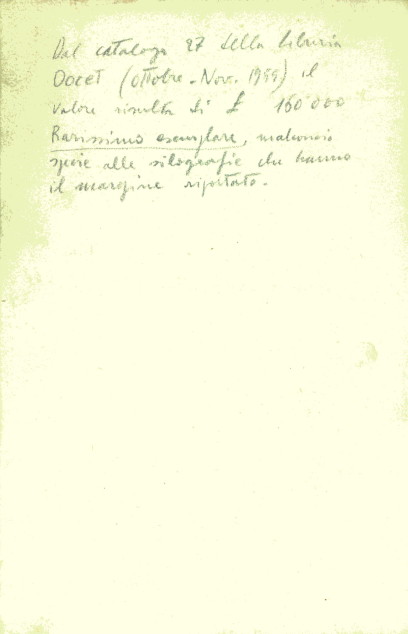 Dal catalogo 27 della libreria
Docet (ottobre - Nov. 1999) il
valore risulta di £ 160'000
Rarissimo esemplare,
specie alle silografie che hanno
il margine riportato.